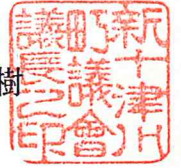 樹
新十津川
町議會
議長之印